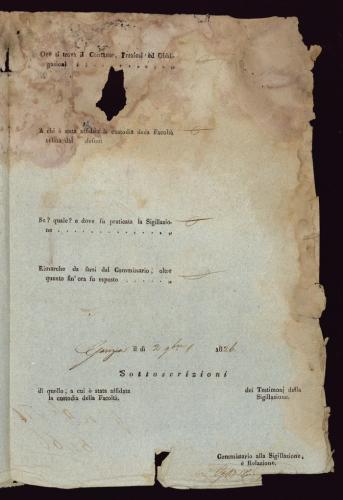 Ove si trova il Contante, Preziosi ed Obbli-
gazioni . . . . . . . . . . . „
A chi è stata affidata la custodia della Facoltà
relitta dal defunto
Se? quale? e dove fu praticata la Sigillazio-
ne . . . . . . . . . . . . . „
Rimarche da farsi dal Commissario, oltre
quanto fin' ora fu esposto . . . . . „
il dì 2 9bre 1826
Sottoscrizioni
di quello, a cui è stata affidata
la custodia della Facoltà.
dei Testimonj della
Sigillazione.
Commissario alla Sigillazione,
e Relazione.